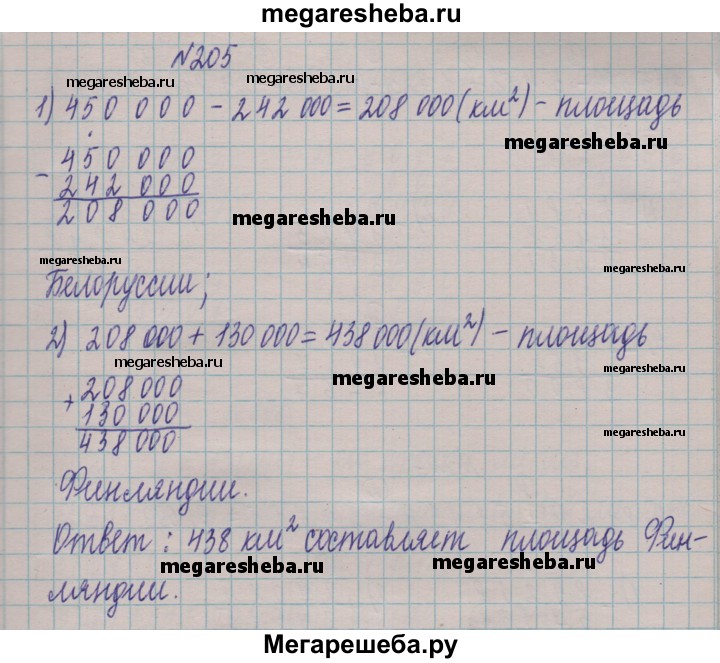 megaresheba.ru
№205
megaresheba.ru megaresheba.ru
1) 450 000 - 242 000 = 208 000 (км²) - площадь
megaresheba.ru
- 450 000
242 000
208 000
megaresheba.ru
megaresheba.ru
megaresheba.ru
Белоруссии;
2) 208 000 + 130 000 = 438 000 (км²) - площадь
megaresheba.ru
megaresheba.ru
megaresheba.ru
+ 208 000
130 000
438 000
megaresheba.ru
Финляндии.
Ответ: 438 км² составляет площадь Фин-
megaresheba.ru megaresheba.ru
ляндии.
Мегарешеба.ру